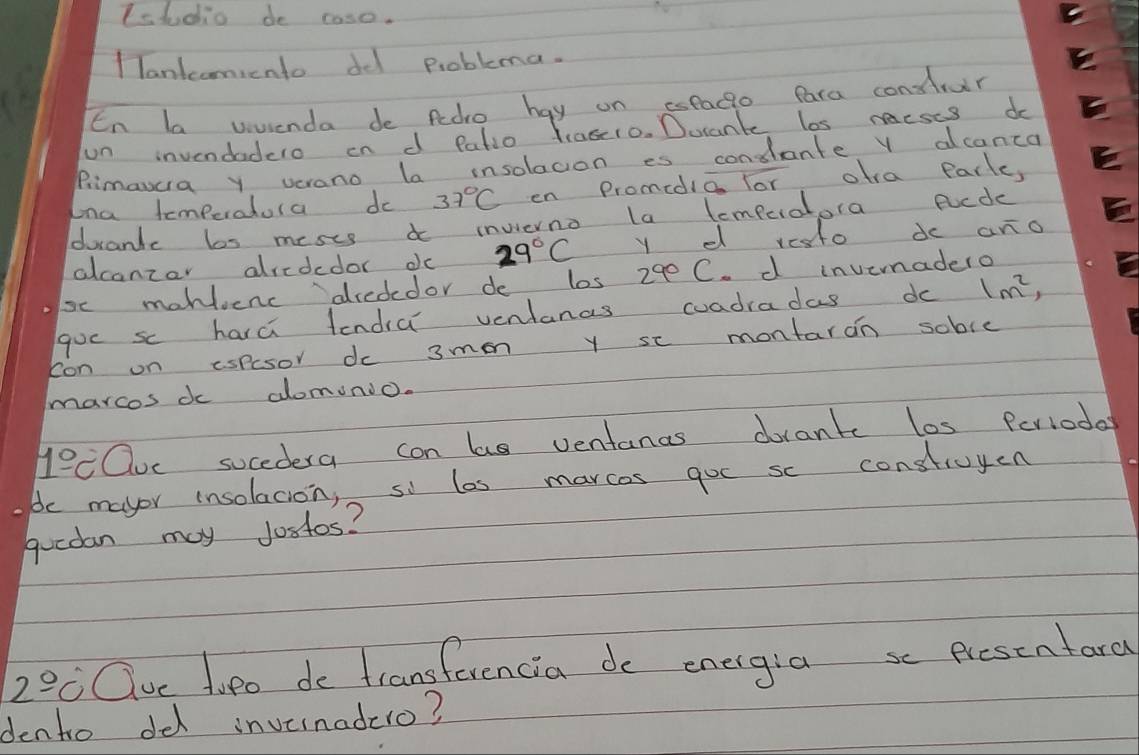 Estudio de caso.
Planteamiento del Problema.
En la vivienda de Pedro hay un espacio Para construir
un invendadero en el Patio trasero. Durante los meses de
Primavera y verano la insolacion es constante y alcanza
una temperatura de 37°C en Promedio. Por otra Parte,
durante los meses de invierno la temperatura Puede
alcanzar alrededor de 29°C y el resto de año
se mantiene alrededor de los 29° C. el invernadero
que se hará tendrá ventanas cuadradas de 1m²,
con un espesor de 3mm y se montarán sobre
marcos de aluminio.
1º¿Que sucedera con las ventanas durante los Periodos
de mayor insolación, si los marcos que se construyen
quedan muy Justos?
2º¿Que tipo de transferencia de energia se Presentara
dentro del invernadero?